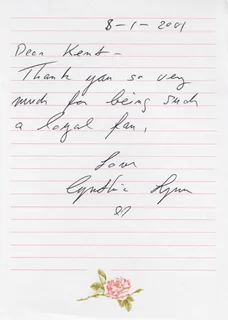 8-1-2001
Dear Kent-
Thank you so very
much for being such
a loyal fan,
Love
Cynthia Lynn